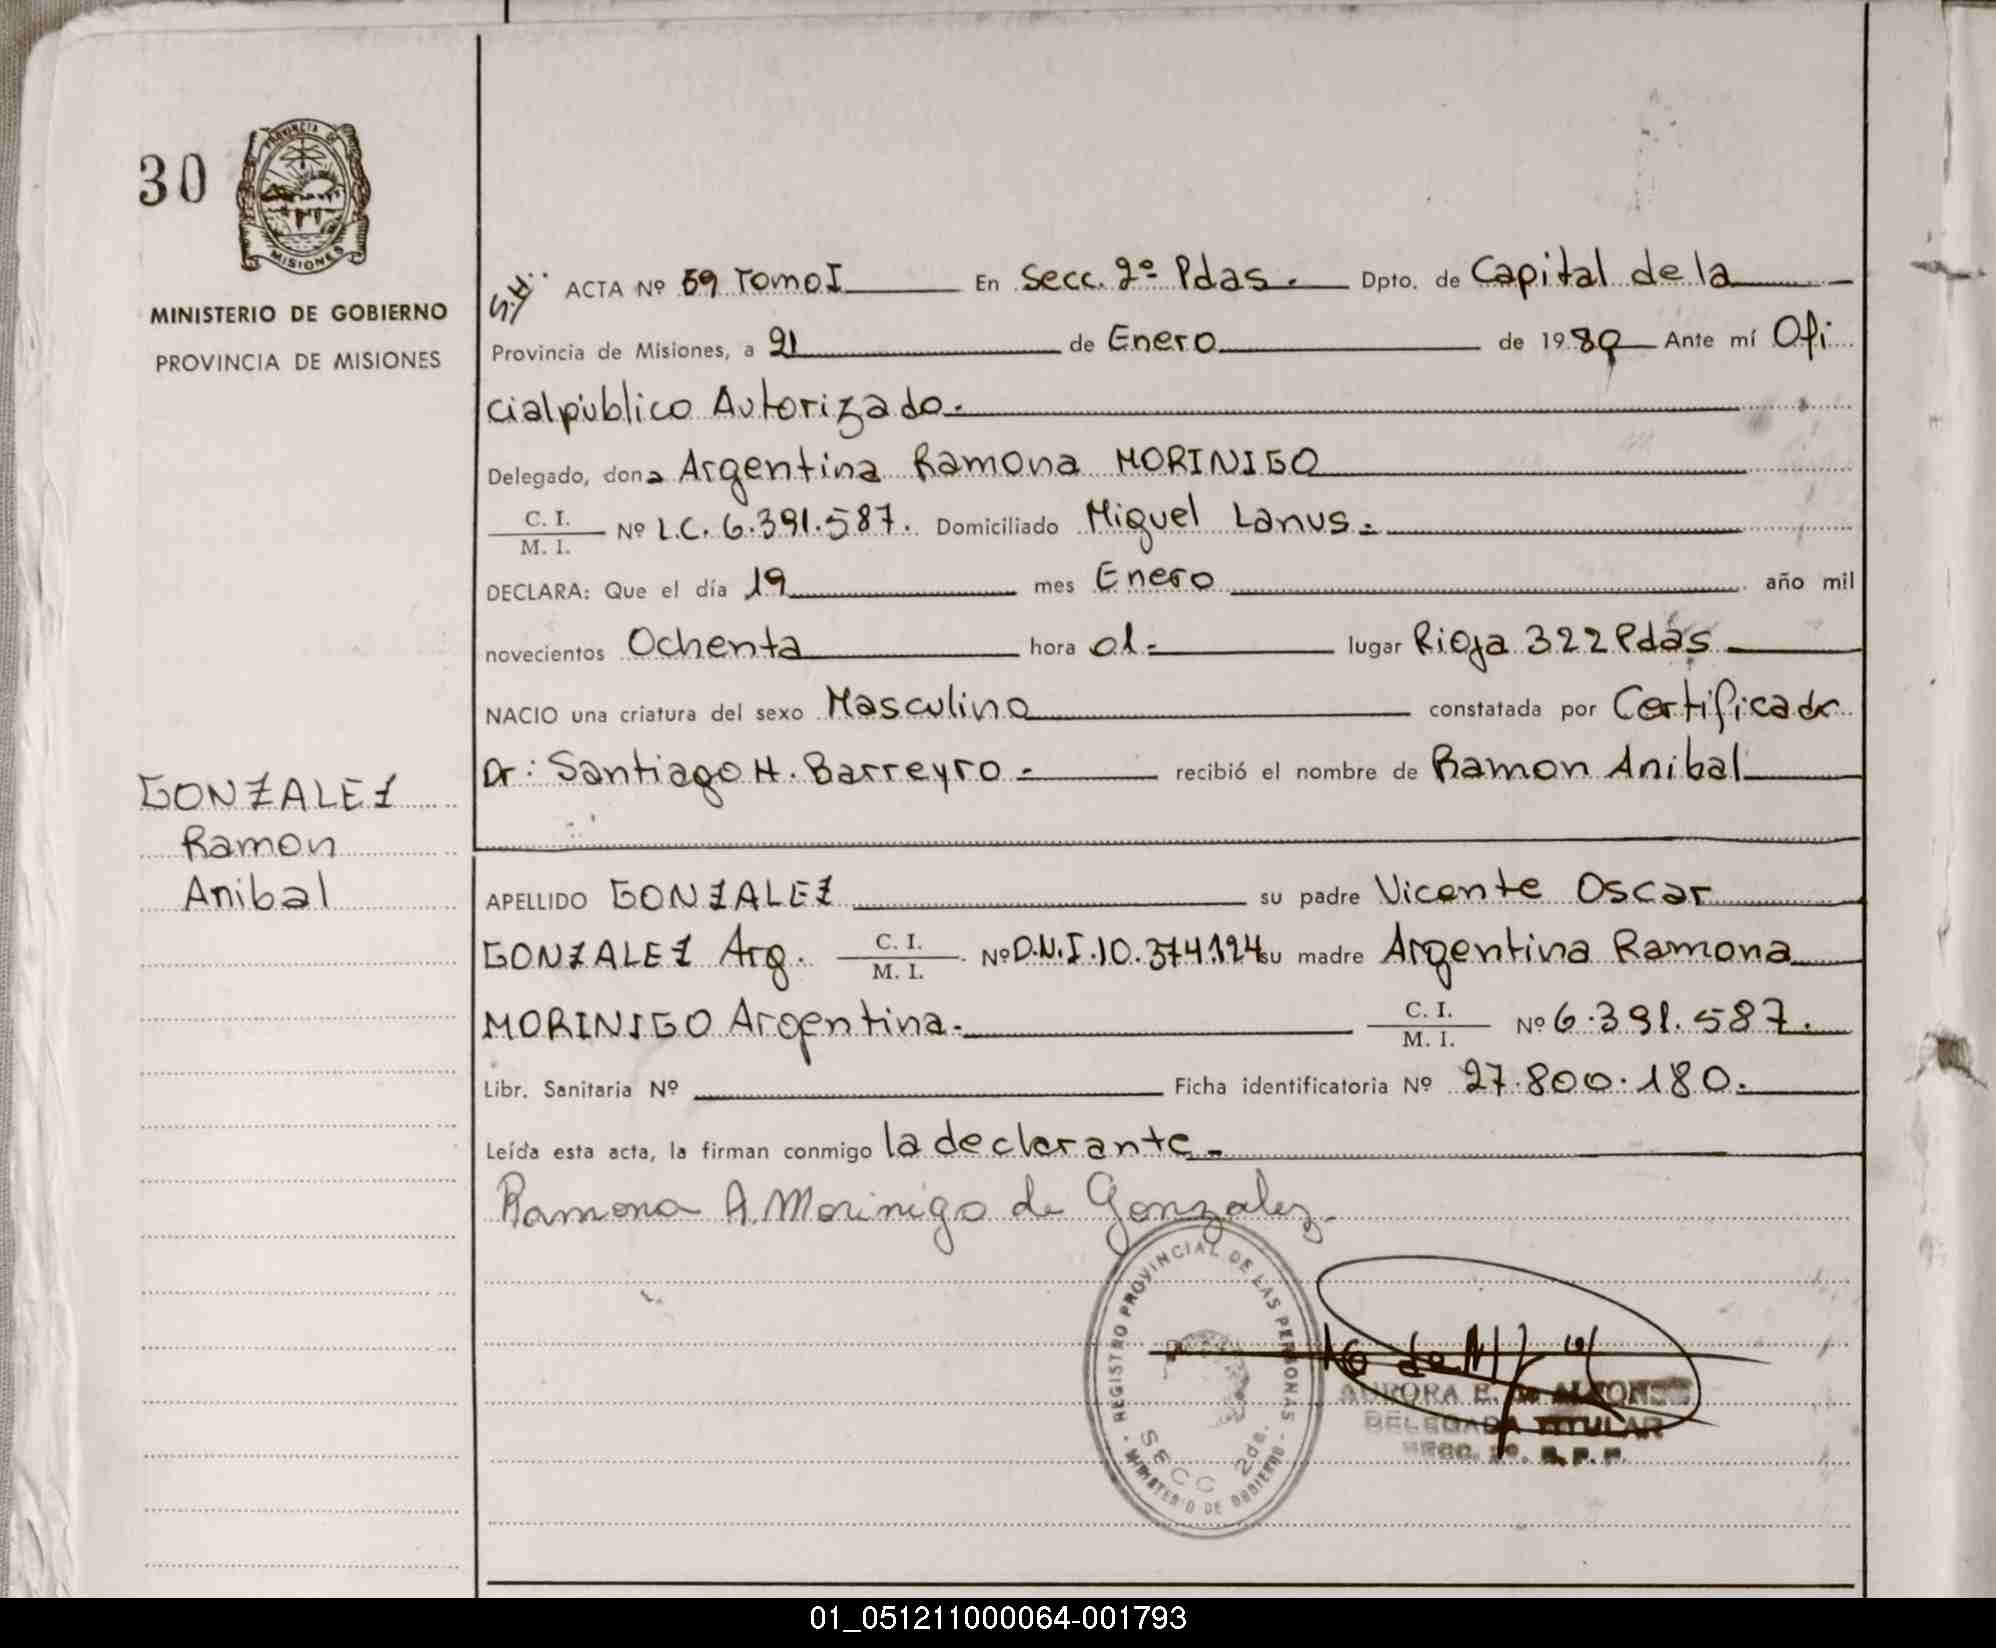 30
PROVINCIA DE
MISIONES
MINISTERIO DE GOBIERNO
PROVINCIA DE MISIONES
GONZALEZ
Ramon
Anibal
S.H.. ACTA Nº 59 Tomo I En Secc. 2º Pdas. Dpto. de Capital de la
Provincia de Misiones, a 21 de Enero de 1980 Ante mí Ofi
cial público Autorizado.
Delegado, dona Argentina Ramona MORINIGO
C. I.
M. I. Nº L.C. 6.391.587. Domiciliado Miguel Lanus.
DECLARA: Que el día 19 mes Enero año mil
novecientos Ochenta hora 01 lugar Rioja 322 Pdas
NACIO una criatura del sexo Masculino constatada por Certificado
Dr: Santiago H. Barreyro - recibió el nombre de Ramon Anibal
APELLIDO GONZALEZ su padre Vicente Oscar
GONZALEZ Arg. C. I.
M. I. Nº D.N.I. 10.374.124 su madre Argentina Ramona
MORINIGO Argentina. C. I.
M. I. Nº 6.391.587.
Libr. Sanitaria Nº Ficha identificatoria Nº 27.800.180.
Leída esta acta, la firman conmigo la declarante.
Ramona A. Morinigo de Gonzalez.
REGISTRO PROVINCIAL DE LAS PERSONAS
SECC 2da.
MINISTERIO DE GOBIERNO
AURORA E. de
DELEGADA TITULAR
SECC. 2º. R. P. P.
01_051211000064-001793